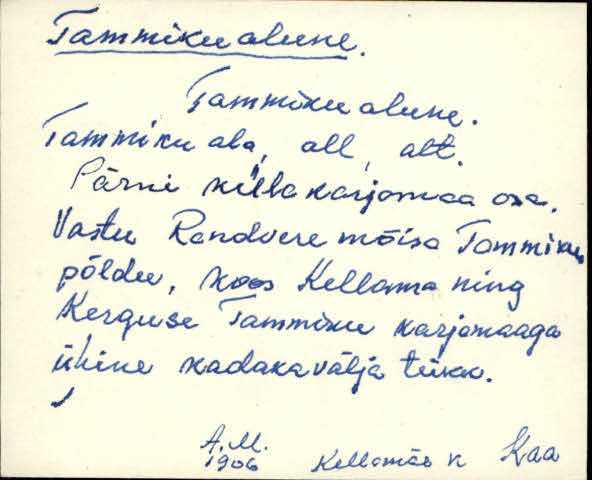 Tammiku alune.
Tammiku alune.
Tammiku ala, all, alt.
Pärni küla karjamaa osa.
Vastu Randvere mõisa Tammiku
põldu, koos Kellama ning
Kerguse Tammiku karjamaaga
ühine kadakavälja tükk.
A.M.
1906 Kellamäe k Kaa